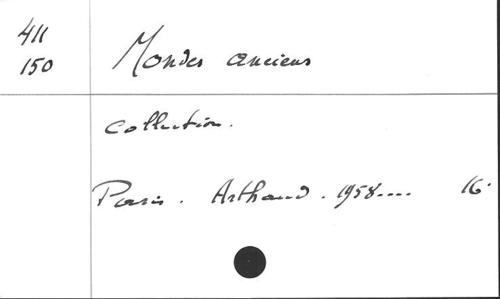 411
150
Mondes anciens
collection.
Paris. Arthaud. 1958.... 16°